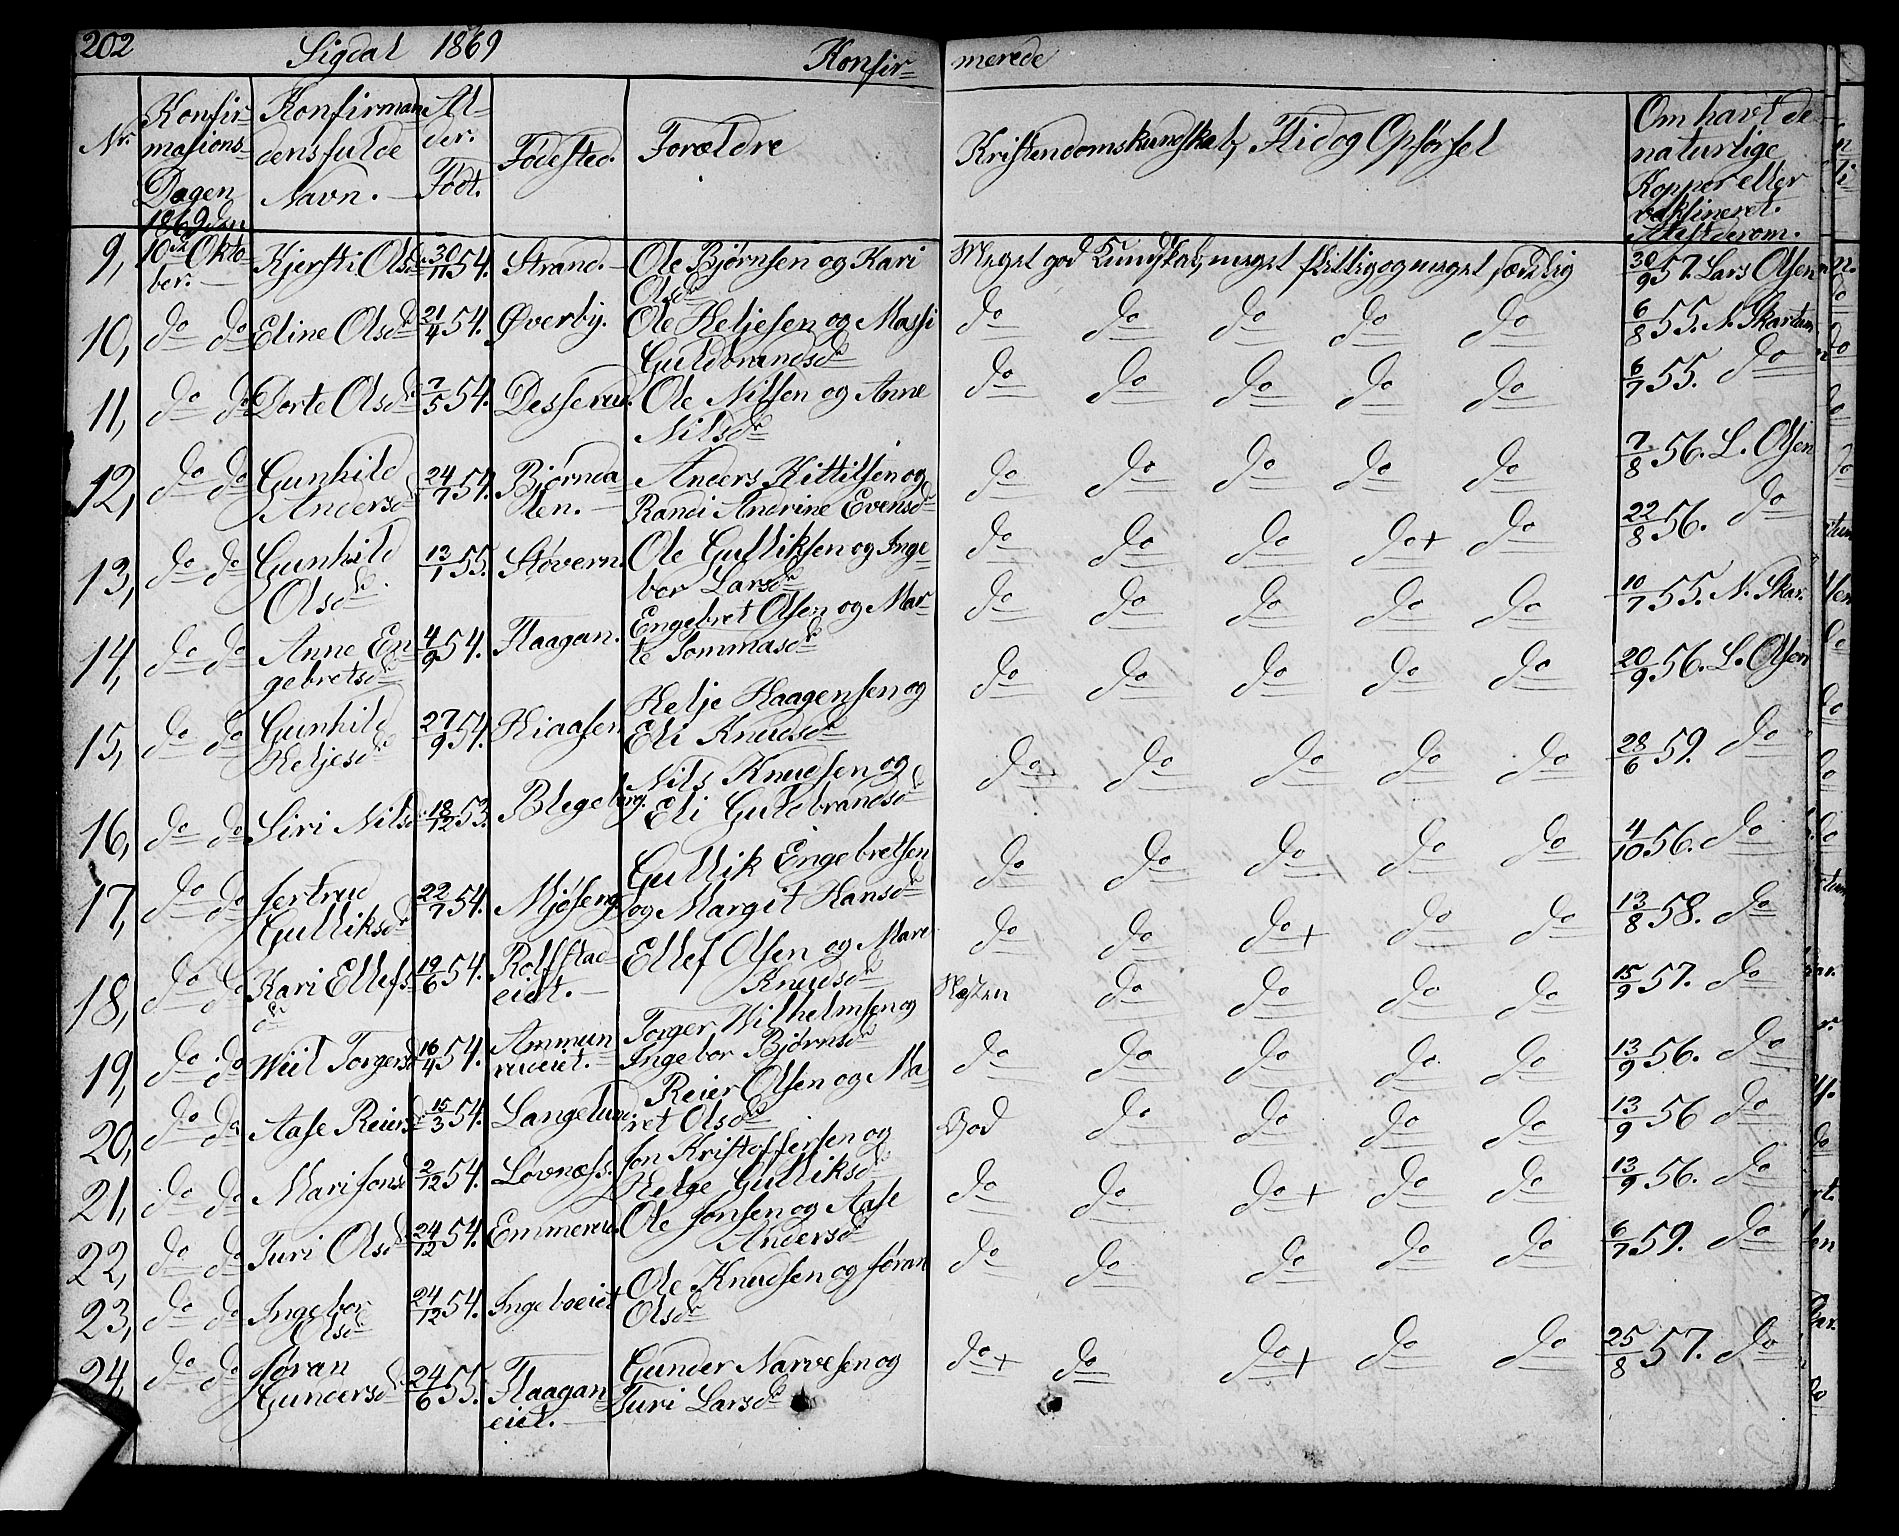 202 Sigdal 1869 Konfir- merede
Nr. Konfir- masions- Dagen 1869 den | Konfirman- dens fulde Navn. | Al- der. Født. | Fødested. | Forældre | Kristendomskundskab, Flid og Opførsel | Om havt de naturlige Kopper eller vaksineret. Attest derom.
9, 10de Okto- ber. Kjersti Olsdr 30/11 54. Strand. Ole Bjørnsen og Kari Olsdr Meget god Kundskab, meget flittig og meget sædelig 30/9 57. Lars Olsen
10, do do Eline Olsdr 21/4 54. Øverby. Ole Heljesen og Massi Guldbrandsdr do do do do do 6/8 55. N. Skartum
11, do do Dorte Olsdr 7/5 54. Desserud. Ole Nilsen og Anne Nilsdr do do do do do 6/7 55. do
12, do do Gunhild Andersdr 24/7 54. Bjørnda- len. Anders Kittilsen og Randi Andrine Evensdr do do do do do 7/8 56. L. Olsen
13, do do Gunhild Olsdr 13/1 55. Støvern. Ole Gulliksen og Inge- bor Larsdr do do do do+ do 22/8 56. do
14, do do Anne En- gebretsdr 4/9 54. Flaagan. Engebret Olsen og Mar- te Tommasdr do do do do do 10/7 55. N. Skar.
15, do do Gunhild Heljesdr 27/9 54. Helje Haagensen og Eli Knudsdr do do do do do 20/9 56. L. Olsen
16, do do Siri Nilsdr 18/12 53. Blegeberg. Nils Knudsen og Eli Guldbrandsdr do do do do do 28/6 59. do
17, do do Jertrud Gulliksdr 22/7 54. Mjøseng. Gullik Engebretsen og Margit Hansdr do do do do do 4/10 56. do
18, do do Kari Ellefs- dr 19/6 54. Rolfstad- eiet. Ellef Olsen og Mari Knudsdr do do do+ do do 13/8 58. do
19, do do Wiil Torgersdr 16/4 54. Ammun- rudeiet. Torger Wilhelmsen og Ingebor Bjørnsdr Næsten do do do do 15/9 57. do
20, do do Aase Reiersdr 15/3 54. Langelud. Reier Olsen og Ma- ret Olsdr do do do do do 13/9 56. do
21, do do Mari Jonsdr 2/12 54. Løvnæss. Jon Kristoffersen og Helge Gulliksdr God do do do do 13/9 56 do
22, do do Turi Olsdr 24/12 54. Emmerud. Ole Jonsen og Aase Andersdr do do do+ do do 13/9 56. do
23, do do Ingebor Olsdr 24/12 54. Ingeboeiet Ole Knudsen og Jøran Olsdr do do do do do 6/7 59. do
24, do do Jøran Gundersdr 24/6 55. Flaagan- eiet. Gunder Narvesen og Turi Larsdr do+ do do+ do do 25/8 57. do